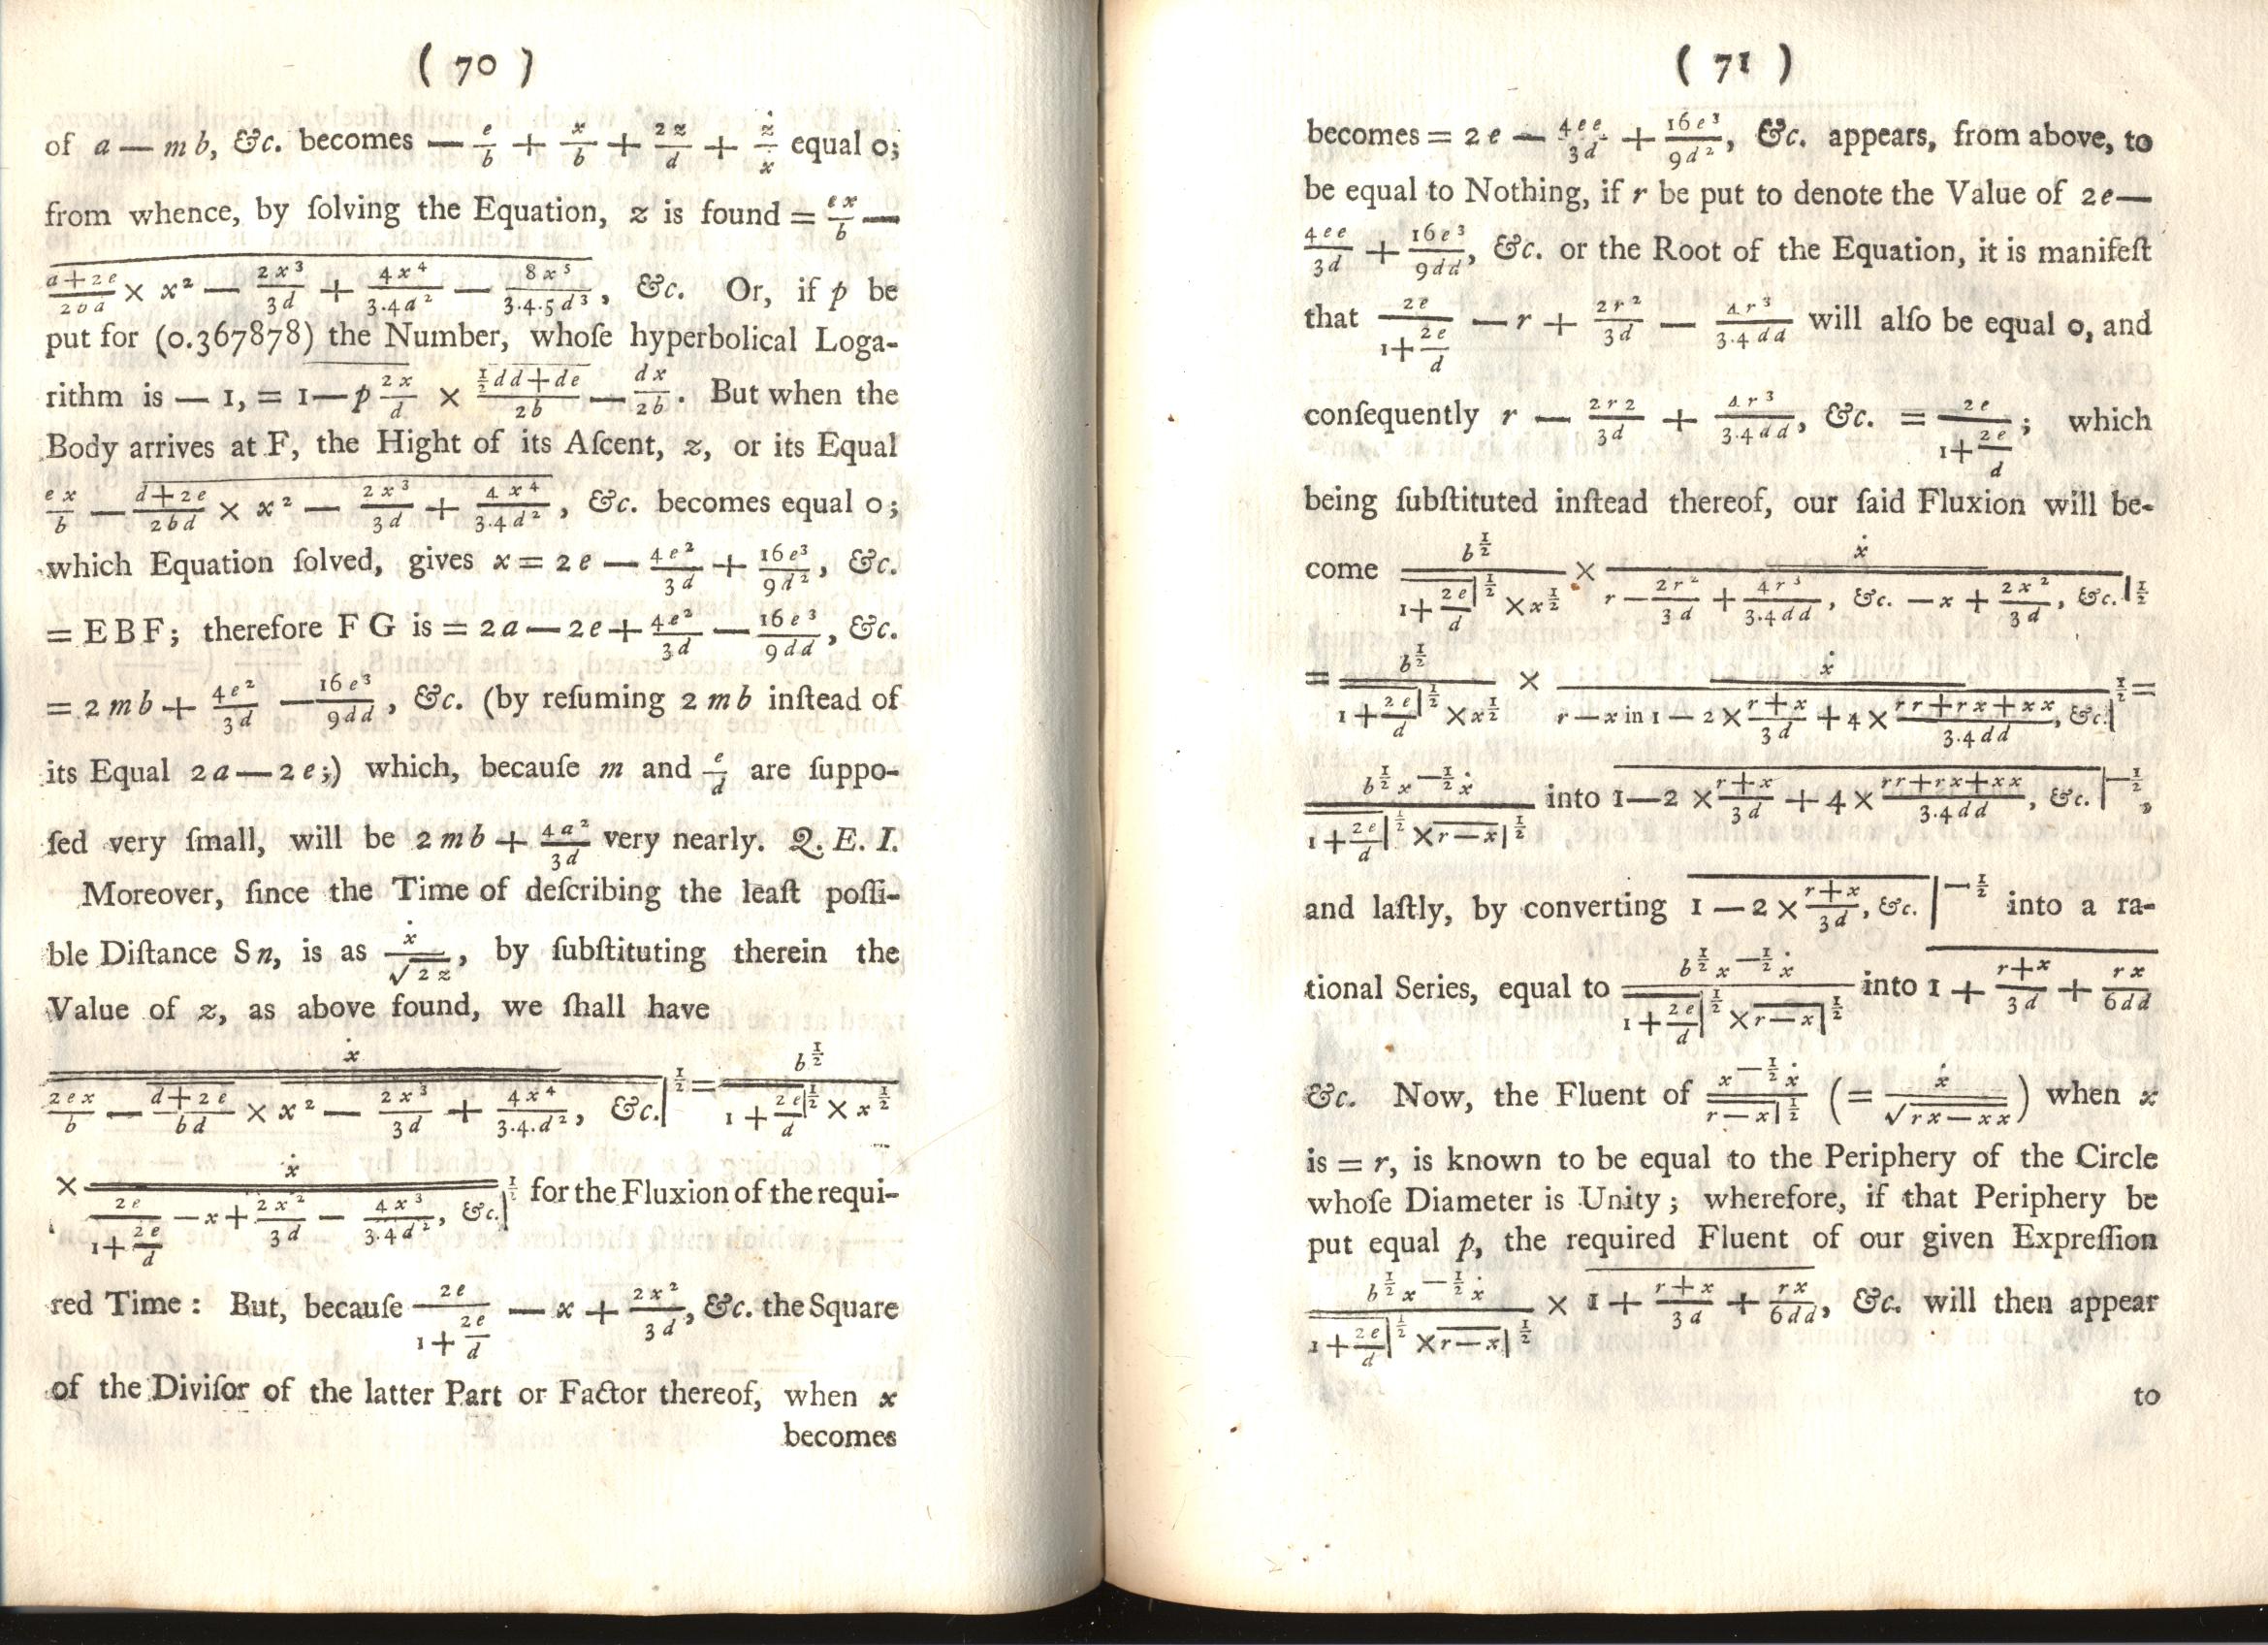 ( 70 )
of a — m b, &c. becomes — e/b + x/b + 2z/d + ż/ẋ equal 0;
from whence, by ſolving the Equation, z is found = ex/b —
a+2e/2bd × x² — 2x³/3d + 4x⁴/3.4d² — 8x⁵/3.4.5d³, &c. Or, if p be
put for (0.367878) the Number, whoſe hyperbolical Loga-
rithm is — 1, = 1—p 2x/d × ½dd+de/2b — dx/2b. But when the
Body arrives at F, the Hight of its Aſcent, z, or its Equal
ex/b — d+2e/2bd × x² — 2x³/3d + 4x⁴/3.4d², &c. becomes equal 0;
which Equation ſolved, gives x = 2e — 4e²/3d + 16e³/9d², &c.
= EBF; therefore FG is = 2a—2e+ 4e²/3d — 16e³/9dd, &c.
= 2mb + 4e²/3d — 16e³/9dd, &c. (by reſuming 2mb inſtead of
its Equal 2a—2e;) which, becauſe m and e/d are ſuppo-
ſed very ſmall, will be 2mb + 4a²/3d very nearly. Q. E. I.
Moreover, ſince the Time of deſcribing the leaſt poſſi-
ble Diſtance Sn, is as ẋ/√2z, by ſubſtituting therein the
Value of z, as above found, we ſhall have
ẋ/2ex/b — d+2e/bd × x² — 2x³/3d + 4x⁴/3.4.d², &c.|½ = b½/1+2e/d|½ × x½
× ẋ/2e/1+2e/d — x + 2x²/3d — 4x³/3.4d², &c.|½ for the Fluxion of the requi-
red Time: But, becauſe 2e/1+2e/d — x + 2x²/3d, &c. the Square
of the Diviſor of the latter Part or Factor thereof, when x
becomes
( 71 )
becomes = 2e — 4ee/3d + 16e³/9d², &c. appears, from above, to
be equal to Nothing, if r be put to denote the Value of 2e—
4ee/3d + 16e³/9dd, &c. or the Root of the Equation, it is manifeſt
that 2e/1+2e/d — r + 2r²/3d — 4r³/3.4dd will alſo be equal 0, and
conſequently r — 2r2/3d + 4r³/3.4dd, &c. = 2e/1+2e/d; which
being ſubſtituted inſtead thereof, our ſaid Fluxion will be-
come b½/1+2e/d|½ × x½ × ẋ/r — 2r²/3d + 4r³/3.4dd, &c. — x + 2x²/3d, &c.|½
= b½/1+2e/d|½ × x½ × ẋ/r — x in 1 — 2 × r+x/3d + 4 × rr+rx+xx/3.4dd, &c.|½ =
b½x—½ẋ/1+2e/d|½ × r—x|½ into 1—2 × r+x/3d + 4 × rr+rx+xx/3.4dd, &c.|—½,
and laſtly, by converting 1 — 2 × r+x/3d, &c.|—½ into a ra-
tional Series, equal to b½x—½ẋ/1+2e/d|½ × r—x|½ into 1 + r+x/3d + rx/6dd
&c. Now, the Fluent of x—½ẋ/r—x|½ (= ẋ/√rx—xx) when x
is = r, is known to be equal to the Periphery of the Circle
whoſe Diameter is Unity; wherefore, if that Periphery be
put equal p, the required Fluent of our given Expreſſion
b½x—½ẋ/1+2e/d|½ × r—x|½ × 1 + r+x/3d + rx/6dd, &c. will then appear
to